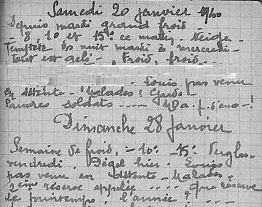 Samedi 20 janvier 1940
Depuis mardi grand froid
8, 10 et 15° ce matin. Neige.
Tempête la nuit mardi à mercredi
Tout est gelé. Froid, froid
Louis pas venu
en détente. Malades, Garde
Pauvres soldats
Dimanche 28 janvier
Semaine de froid, - 10° - 15° Verglas
vendredi. Dégel hier. Louis
pas venu en détente. Malades
2ème réserve appelée que réserve
le printemps. l'année ?